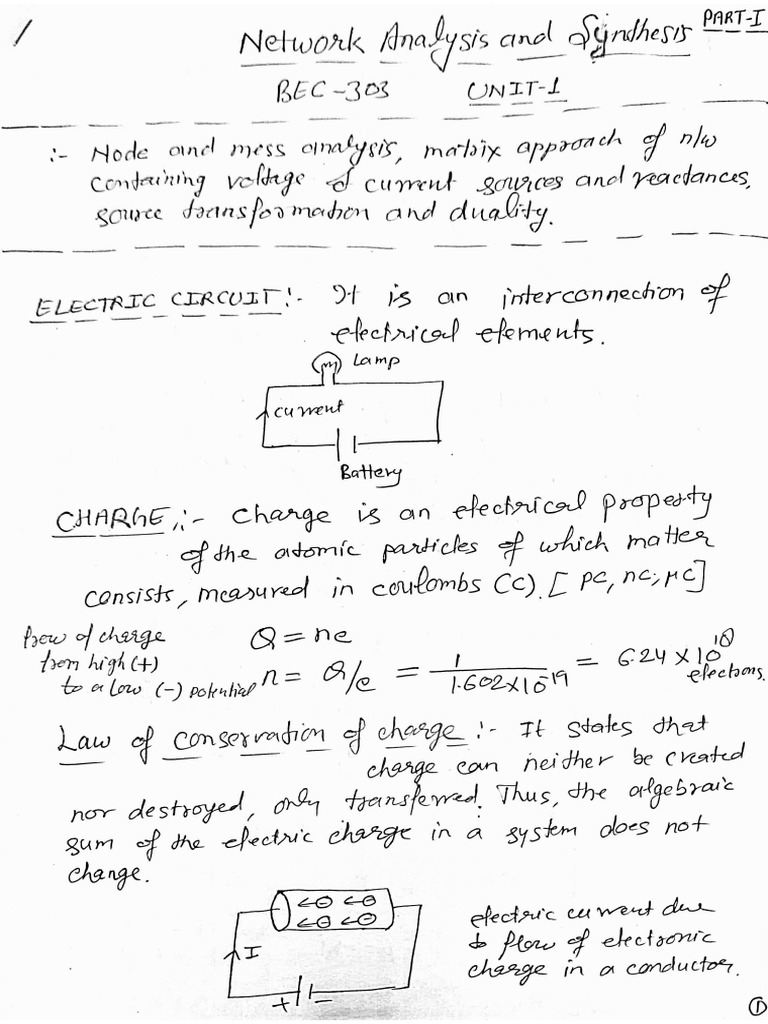 1
Network Analysis and Synthesis PART-I
BEC-303 UNIT-1
:- Node and mess analysis, matrix approach of n/w
containing voltage & current sources and reactances,
source transformation and duality.
ELECTRIC CIRCUIT:- It is an interconnection of
electrical elements.
Lamp
current
Battery
CHARGE,:- Charge is an electrical property
of the atomic particles of which matter
consists, measured in coulombs (C). [PC, nC, μC]
flow of charge
from high (+)
to a low (-) potential
Q = ne
n = Q/e = 1/1.602×10⁻¹⁹ = 6.24×10¹⁸
electrons.
Law of conservation of charge:- It states that
charge can neither be created
nor destroyed, only transferred. Thus, the algebraic
sum of the electric charge in a system does not
change.
I
+ -
electric current due
to flow of electronic
charge in a conductor.
1